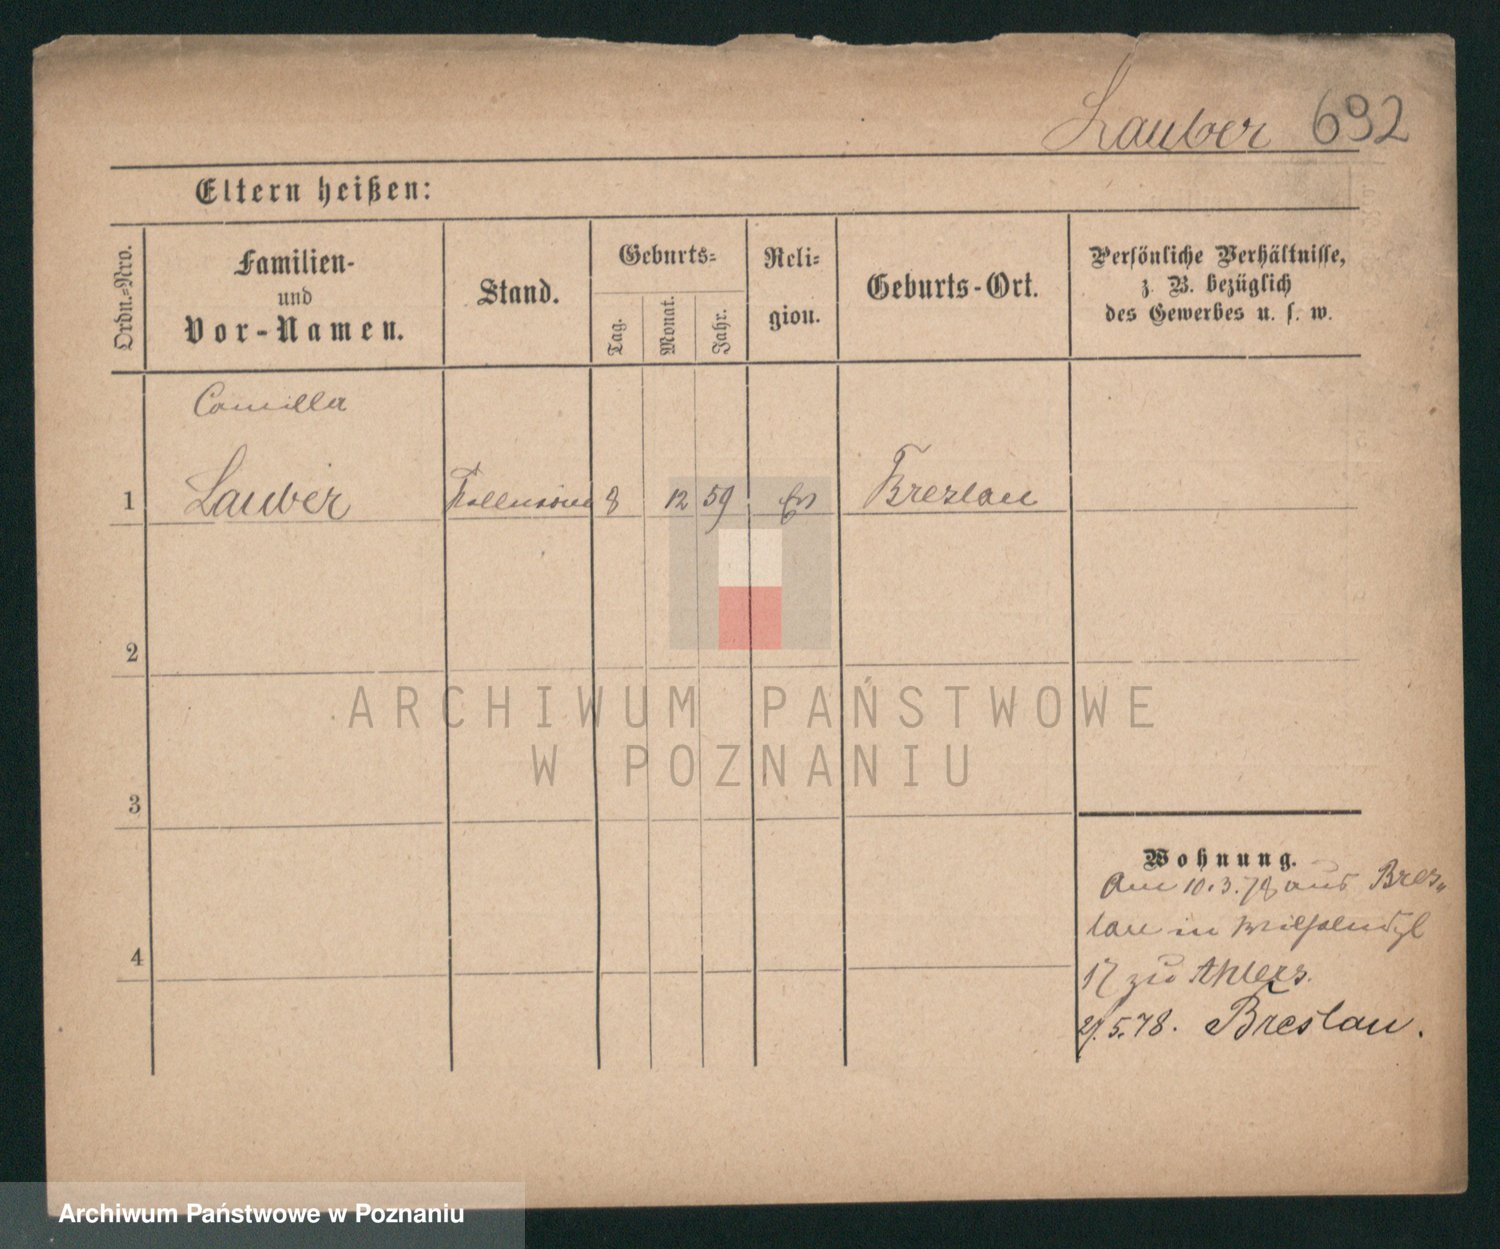 Lauber 692
Eltern heißen:
Ordn.-Nro.
Familien-
und
Vor-Namen.
Stand.
Geburts-
Tag.
Monat.
Jahr.
Reli-
gion.
Geburts-Ort.
Persönliche Verhältnisse,
z. B. bezüglich
des Gewerbes u. s. w.
Camilla
1 Lauber 8 12 59 Ev Breslau
2
3
4
Wohnung.
Am 10.3.78 aus Bres-
lau in
17 zu Ahlers.
27.5.78. Breslau.
ARCHIWUM PAŃSTWOWE
W POZNANIU
Archiwum Państwowe w Poznaniu